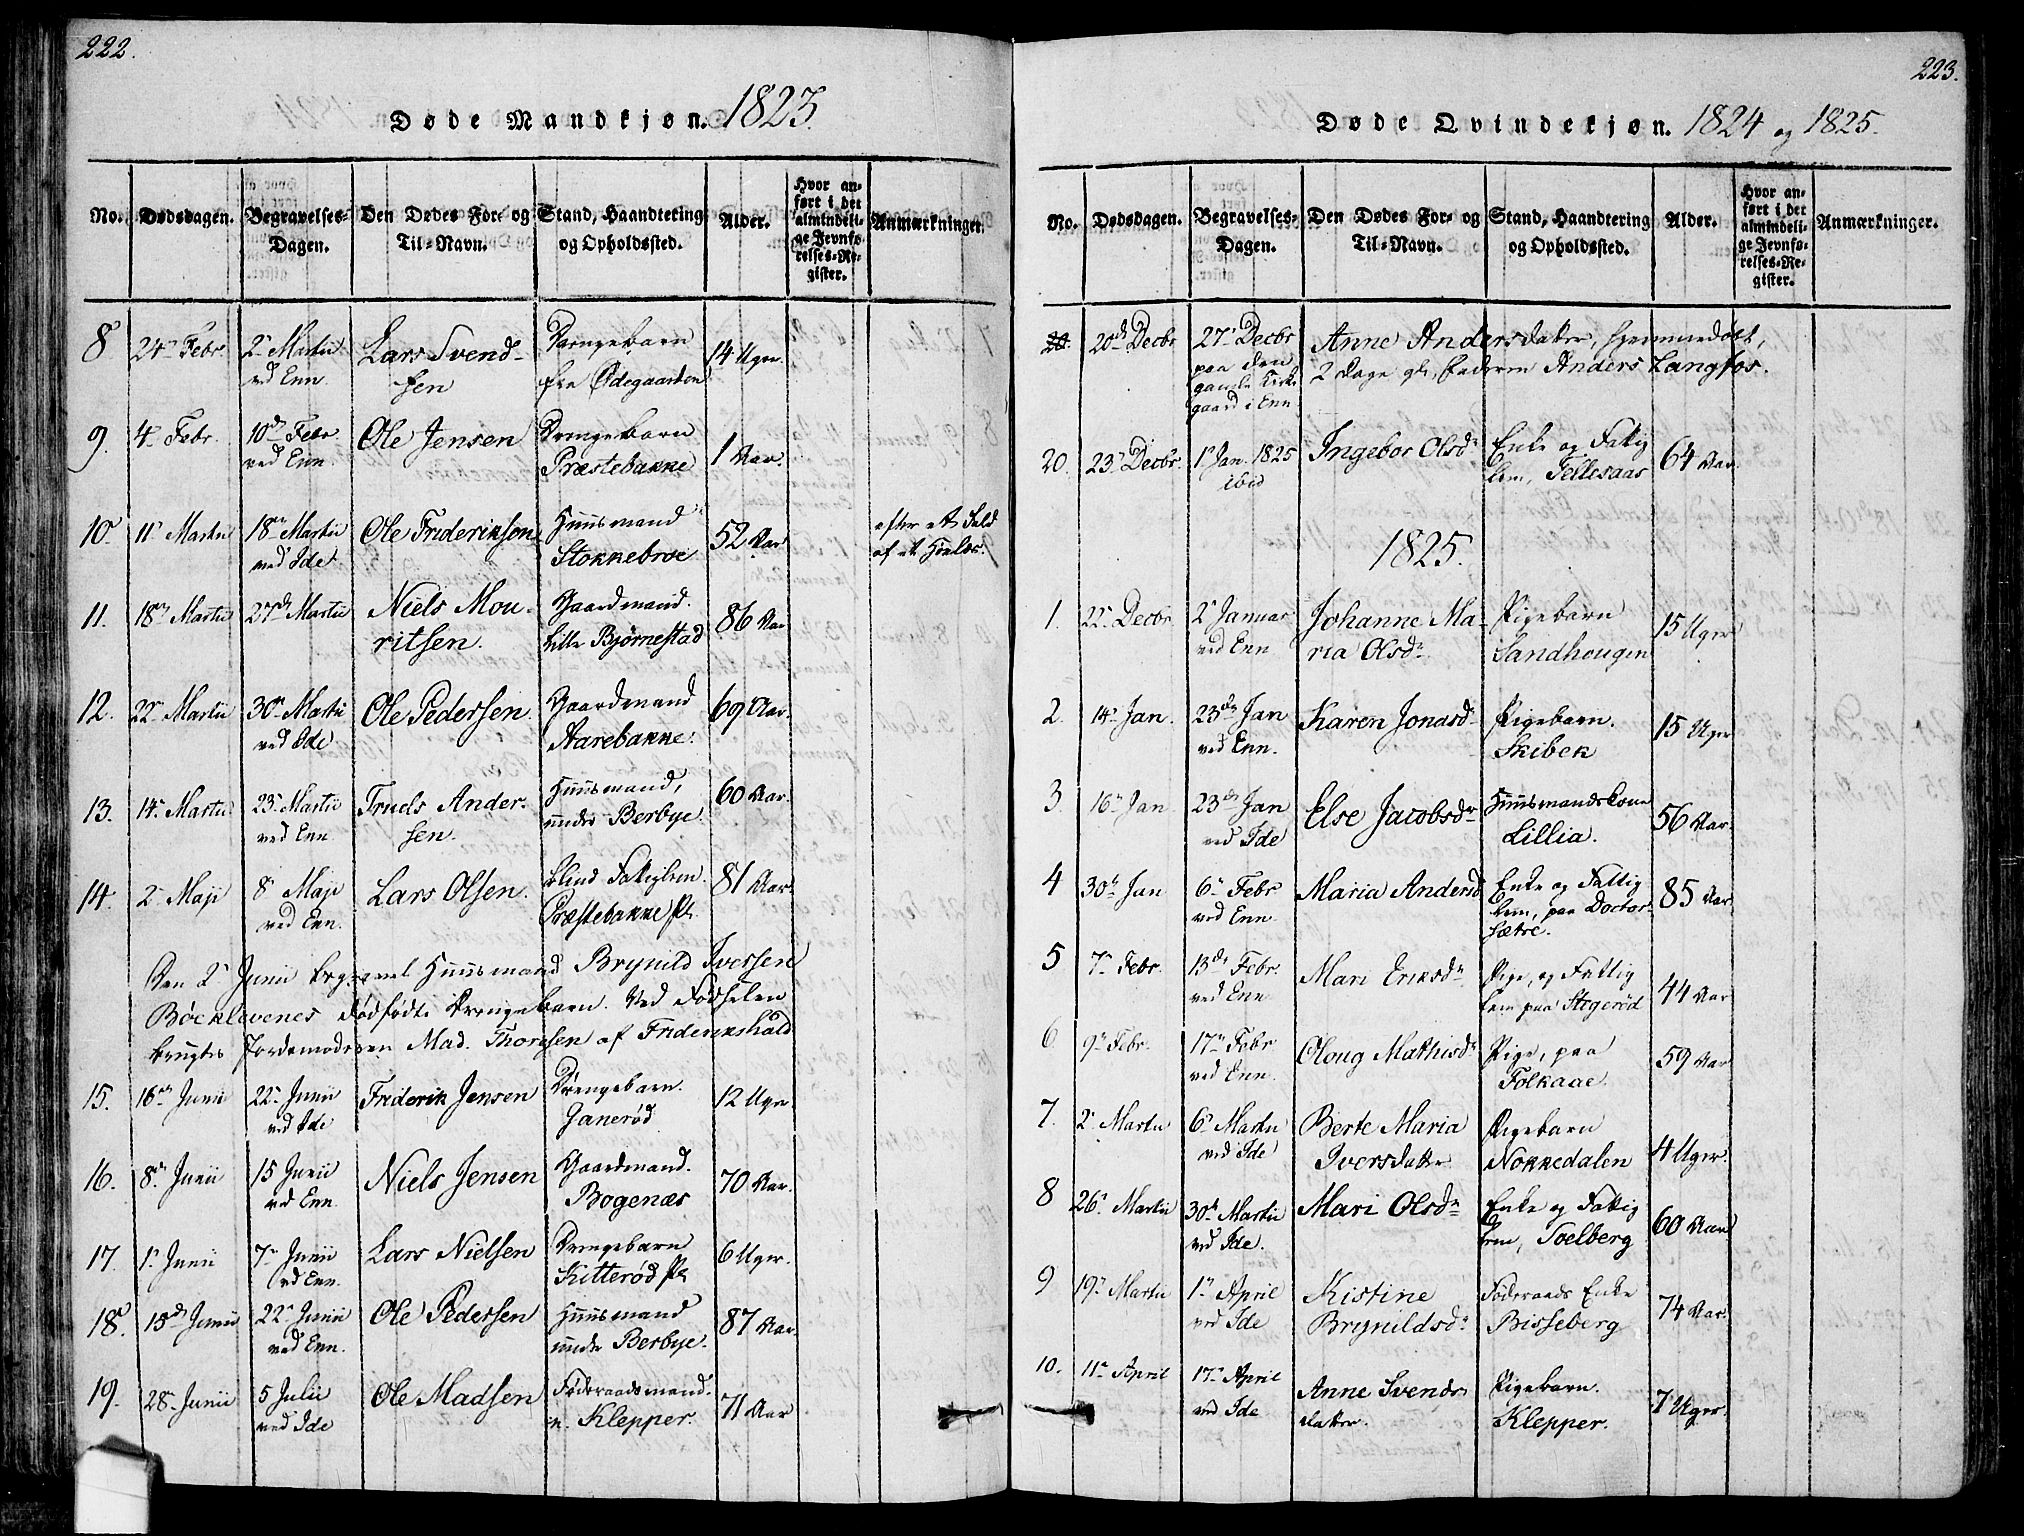 222.
Døde Mandkjøn. 1825.
No.
Dødsdagen.
Begravelses-
Dagen.
Den Dødes For- og
Til-Navn.
Stand, Haandtering
og Opholdssted.
Alder.
Hvor an-
ført i det
almindeli-
ge Jevnfø-
relses-Re-
gister.
Anmærkninger.
8 24 Febr. 2 Martii ved Enn Lars Svend-
sen
Drengebarn
fra Ødegaarden
14 Uger
9. 4 Febr. 10de Febr.
ved Enn.
Ole Jensen
Drengebarn
Præstebakke
1 Aar.
10. 11 Martii 18de Martii
ved Ide
Ole Frideriksen
Huusmand
Stokkebroe
52 Aar
efter et Fald
af et Hiulas.
11. 18de Martii 27de Martii Niels Mou-
ritsen.
Gaardmand.
Lille Bjørnestad
86 Aar
12. 22 Martii 30 Martii
ved Ide
Ole Pedersen.
Gaardmand
Aarebakke.
69 Aar.
13. 14 Martii 23 Martii
ved Enn
Truels Ander-
sen.
Huusmand,
under Berbye.
60 Aar.
14. 2 Maji 8 Maji
ved Enn.
Lars Olsen.
blind Fattiglem.
Præstebakke Pl.
81 Aar
Den 2 Junii begravet Huusmand Brynild Iversen
Bøcklevenes dødfødte Drengebarn. Ved Fødselen
brugtes Jordemoderen Mad. Thoresen af Friderikshald
15. 16de Junii 22 Junii
ved Ide
Friderik Jensen
Drengebarn.
Ganerød
12 Uger
16. 8de Junii 15 Junii
ved Enn
Niels Jensen
Gaardmand.
Bogenæs
70 Aar.
17. 1 Junii 7 Junii
ved Enn.
Lars Nielsen
Drengebarn
Kitterød Pl
6 Uger.
18. 15de Junii 22 Junii
ved Enn.
Ole Pedersen
Huusmand
under Berbye.
87 Aar.
19. 28 Junii 5 Julii
ved Ide
Ole Madsen
Føderaadsmand.
n. Klepper.
71 Aar
223.
Døde Qvindekjøn. 1824 og 1825.
No.
Dødsdagen.
Begravelses-
Dagen.
Den Dødes For- og
Til-Navn.
Stand, Haandtering
og Opholdssted.
Alder.
Hvor an-
ført i det
almindeli-
ge Jevnfø-
relses-Re-
gister.
Anmærkninger.
20 20de Decbr 27 Decbr
paa den
gamle Kirke
gaard i Enn
Anne Andersdatter, hjemmedøbt,
2 Dage gl, Faderen Anders Langfos.
20. 23 Decbr. 1 Jan. 1825
ibid
Ingebor Olsdr
Enke og Fattig
lem, Tellesaas
64 Aar.
1825.
1. 22 Decbr. 2 Januar
ved Enn
Johanne Ma-
ria Olsdr
Pigebarn
Sandhougen
15 Uger
2. 14 Jan. 23de Jan
ved Enn.
Karen Jonasdr
Pigebarn.
Skibek
15 Uger
3. 16 Jan 23de Jan
ved Ide
Else Jacobsdr
Huusmandskone
Lillia.
56 Aar.
4 30 Jan 6 Febr
ved Enn
Maria Andersd
Enke og Fattig
lem, paa Doctor-
sætre.
85 Aar.
5 7 Febr. 13de Febr.
ved Enn
Mari Eriksdr
Pige, og Fattig
lem paa Stegerød
44 Aar
6 9 Febr. 17 Febr
ved Enn.
Oloug Mathisdr
Pige, paa
Folkaae.
59 Aar
7. 2 Martii 6 Martii
ved Ide
Berte Maria
Iversdatter
Pigebarn
Nokkedalen
4 Uger.
8 26 Martii 30 Martii
ved Ide.
Mari Olsdr
Enke og Fattig
lem, Soelberg
60 Aar
9 19 Martii 1 April
ved Ide
Kistine
Brynildsdr
Føderaads Enke
Bisseberg
74 Aar.
10. 11 April 17 April
ved Ide
Anne Svends
datter.
Pigebarn.
Klepper.
7 Uger.